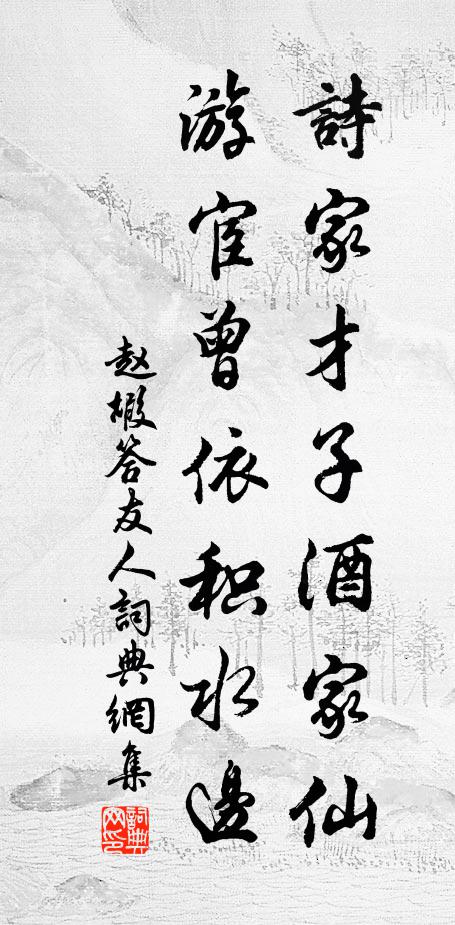 詩家才子酒家仙
游宦曾依积水邊
赵嘏答友人詞典網集
詞典网印